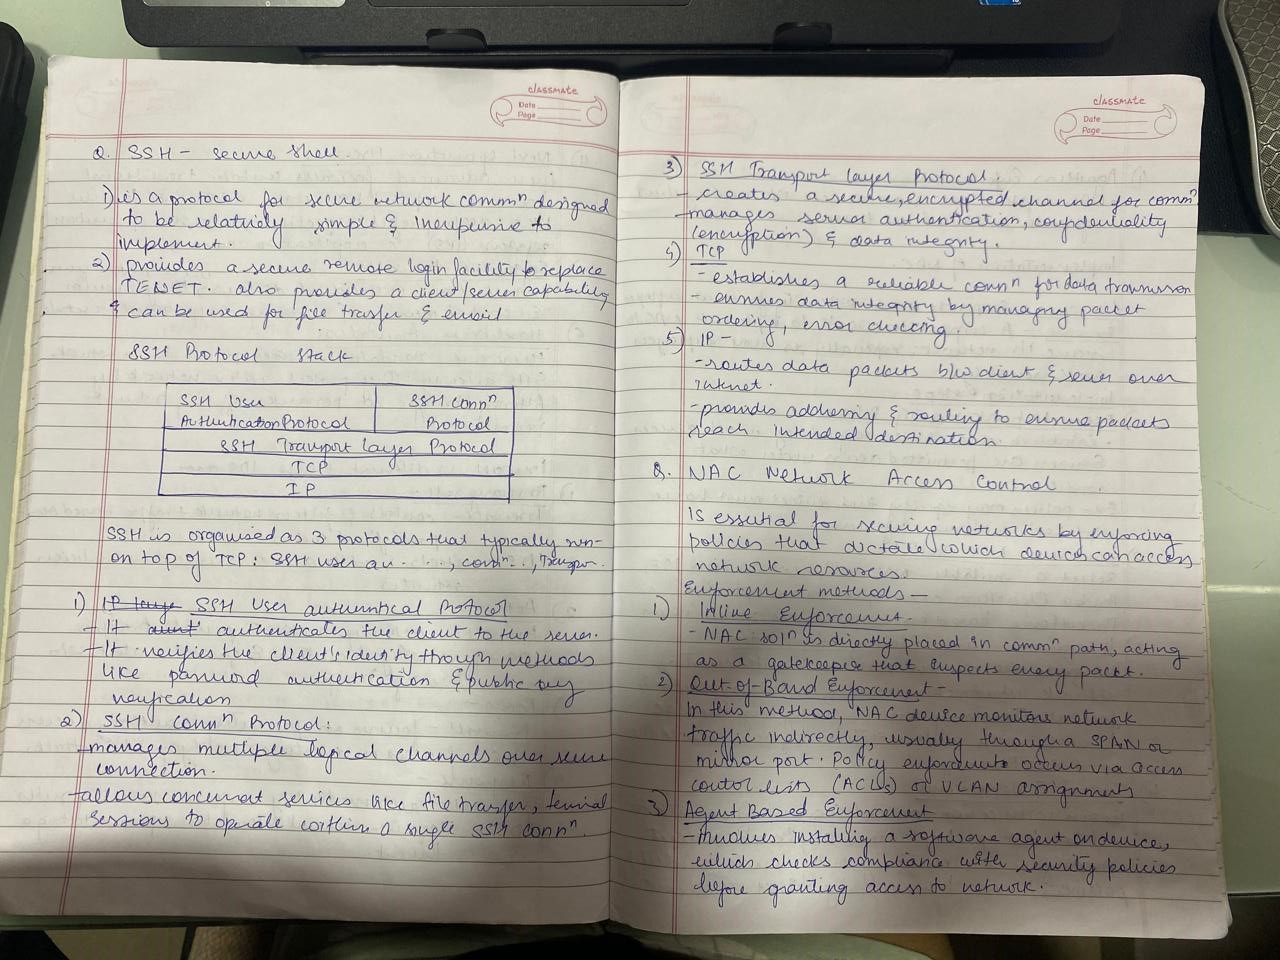 classmate
Date
Page
Q. SSH - secure shell.
1) is a protocol for secure network commⁿ designed
to be relatively simple & inexpensive to
implement.
2) provides a secure remote login facility to replace
TENET. also provides a client/server capability
& can be used for file trasfer & email
SSH Protocol stack
SSH User
Authentication Protocol
SSH connⁿ
Protocol
SSH Transport layer Protocol
TCP
IP
SSH is organised as 3 protocols that typically run
on top of TCP: SSH user au...., connⁿ.., Transpor.
1) SSH User authentical Protocol
- It authenticates the client to the server.
- It verifies the client's identity through methods
like password authentication & public key
verification
2) SSH Connⁿ Protocol:
- manages multiple logical channels over secure
connection.
- allows concurrent services like file trasfer, terminal
sessions to operate within a single SSH connⁿ.
classmate
Date
Page
3) SSH Transport layer Protocol:
- creates a secure, encrypted channel for commⁿ
- manages server authentication, confidentiality
(encryption) & data integrity.
4) TCP
- establishes a reliable connⁿ for data transmission
- ensures data integrity by managing packet
ordering, error checking.
5) IP -
- routes data packets b/w client & server over
internet.
- provides addressing & routing to ensure packets
reach intended destination
Q. NAC Network Access Control
Is essential for securing networks by enforcing
policies that dictate which devices can access
network resources.
Enforcement methods -
1) Inline Enforcement.
- NAC solⁿ is directly placed in commⁿ path, acting
as a gatekeeper that inspects every packt.
2) Out-of-Band Enforcement -
In this method, NAC device monitors network
traffic indirectly, usually through a SPAN or
mirror port. Policy enforcement occurs via access
control lists (ACLs) or VLAN assignments
3) Agent Based Enforcement
- Involves installing a software agent on device,
which checks compliance with security policies
before granting access to network.